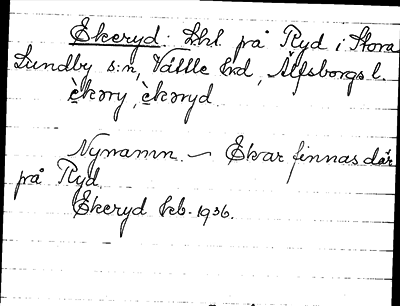 Ekeryd. Lhl. på Ryd i Stora
Lundby s:n, Vättle hd, Älfsborgs l.
èkəry, èkəryd.
Nynamn. – Ekar finnas där
på Ryd.
Ekeryd kb. 1936.